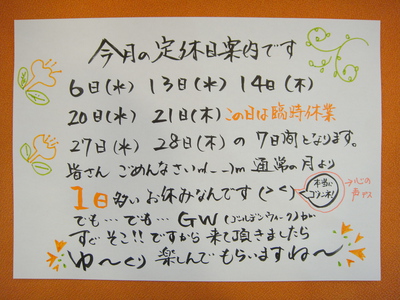 今月の定休日案内です
6日(水) 13日(水) 14日(木)
20日(水) 21日(木)この日は臨時休業
27日(水) 28日(木)の7日間となります。
皆さんごめんなさいm(_ _)m 通常の月より
1日多いお休みなんです(><)
本当に
ゴメンネ!
でも…でも…GW(ゴールデンウィーク)が
すぐそこ!!ですから来て頂きましたら
ゆ〜くり楽しんでもらいますね〜